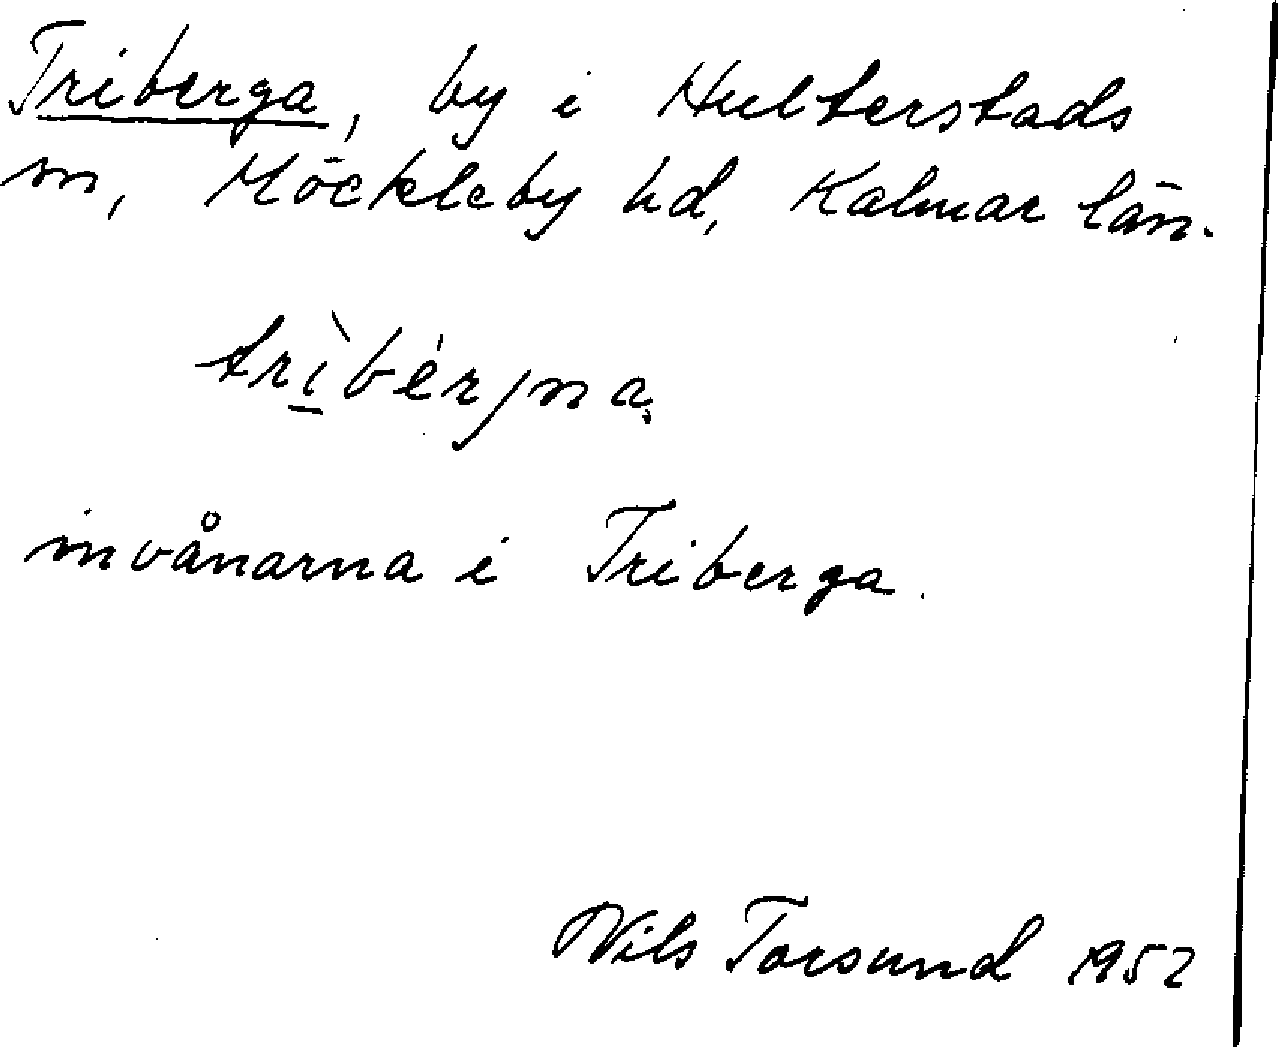 Triberga, by i Hulterstads
sn, Möckleby hd, Kalmar län.
trìbérjna
invånarna i Triberga.
Nils Torsund 1952